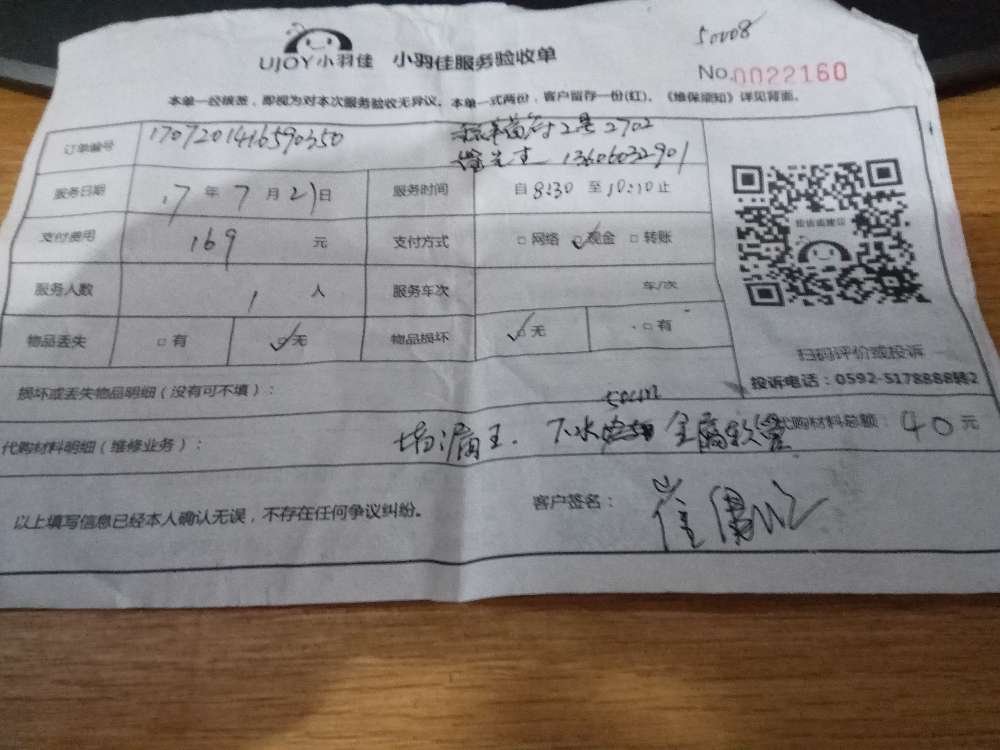 50008
UJOY小羽佳 小羽佳服务验收单
No.0022160
本单一经填签，即视为对本次服务验收无异议。本单一式两份，客户留存一份(红)。《维保须知》详见背面。
订单编号 1707201416590350 2号2702
先生 13606032901
服务日期 17年7月21日 服务时间 自8:30至10:10止
支付费用 169元 支付方式 □网络 ☑现金 □转账
服务人数 1人 服务车次 车/次
物品丢失 □有 ☑无 物品损坏 ☑无 □有
扫码评价或投诉
投诉电话：0592-5178888转2
损坏或丢失物品明细（没有可不填）：
50cm
代购材料明细（维修业务）： 堵漏王. 下水 金属软管 代购材料总额：40元
以上填写信息已经本人确认无误，不存在任何争议纠纷。 客户签名： 崔